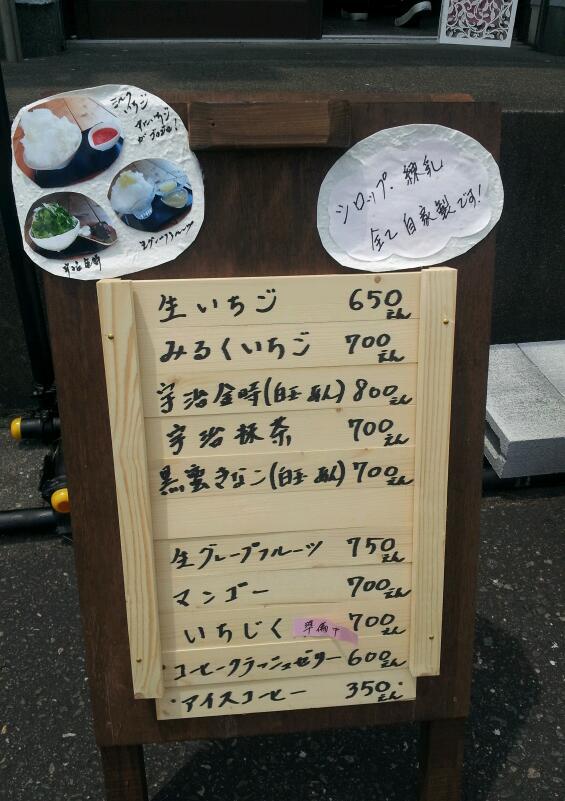 ミルクいちご
がゴロゴロ!
生グレープフルーツ
宇治金時
シロップ・練乳
全て自家製です!
生いちご 650えん
みるくいちご 700えん
宇治金時(白玉あん) 800えん
宇治抹茶 700えん
黒蜜きなこ(白玉あん) 700えん
生グレープフルーツ 750えん
マンゴー 700えん
いちじく 準備中 700えん
・コーヒークラッシュゼリー 600えん
・アイスコーヒー 350えん